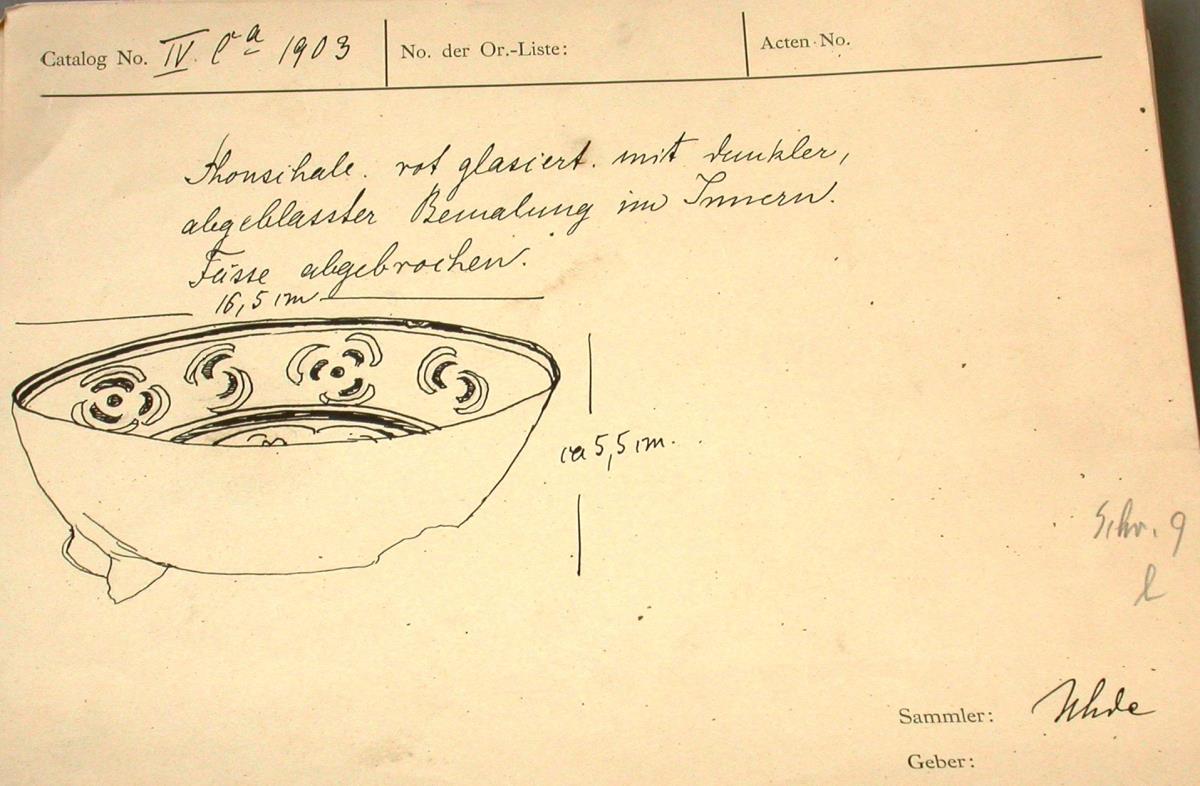 Catalog No. IV Ca 1903 No. der Or.-Liste: Acten No.
Thonschale. rot glasiert. mit dunkler,
abgeblasster Bemalung im Innern.
Füsse abgebrochen.
16,5 cm
ca 5,5 cm.
Schr. 9
l
Sammler: Uhde
Geber: